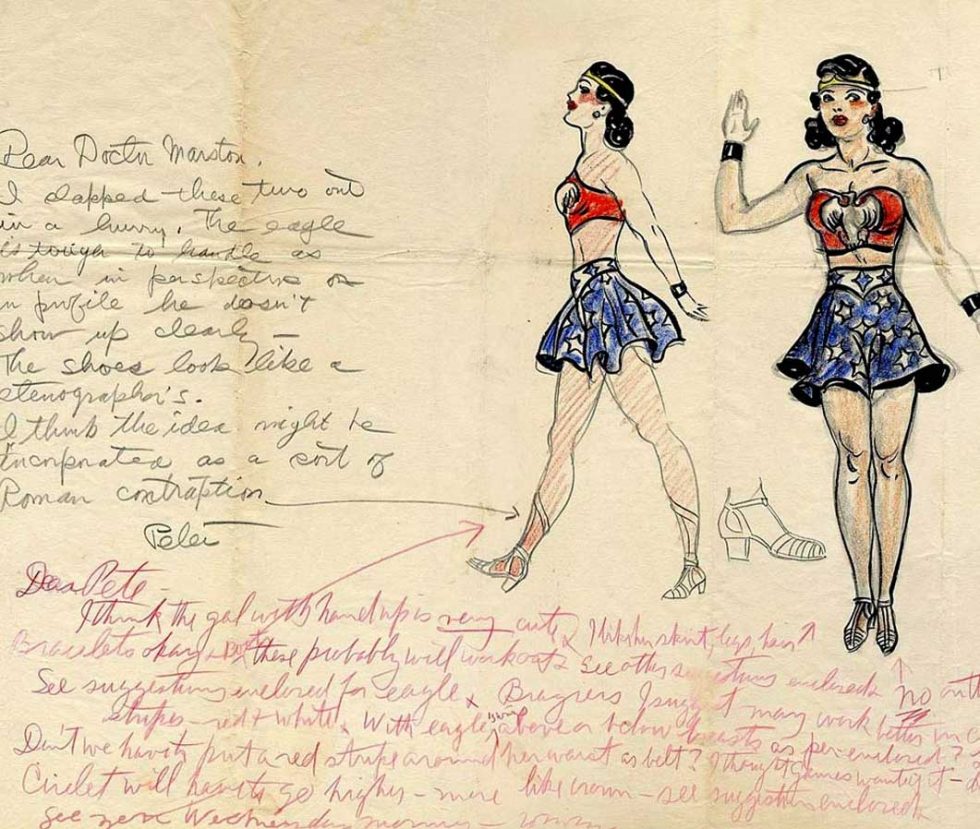 Dear Doctor Marston,
I slapped these two out
in a hurry. The eagle
is tough to handle as
when in perspective or
in profile he doesn't
show up clearly —
The shoes look like a
stenographer's.
I think the idea might be
incorporated as a sort of
Roman contraption
Peter
Dear Pete —
I think the gal with hand up is very cute I like her skirt, legs, hair
Bracelets okay + boots these probably will work out See other suggestions enclosed no
See suggestions enclosed for eagle Brassiere I suggest may work better in
stripes — red + white. With eagle's wings above or below breasts as per enclosed?
Don't we have to put a red stripe around her waist as belt? I thought Gaines wanted it —
Circlet will have to go higher — more like crown — see suggestions enclosed
See you Wednesday morning —